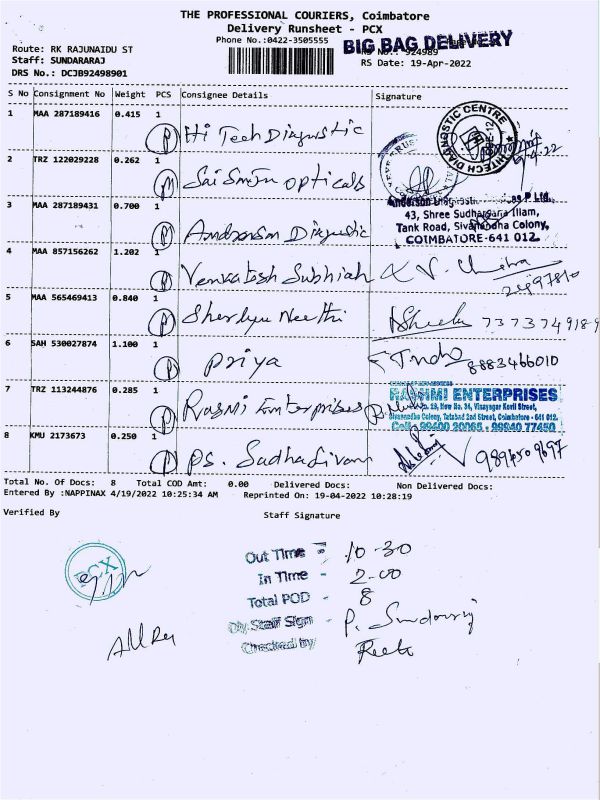 THE PROFESSIONAL COURIERS, Coimbatore
Delivery Runsheet - PCX
Phone No.:0422-3505555
BIG BAG DELIVERY
Route: RK RAJUNAIDU ST
RS No.: 924989
Staff: SUNDARARAJ
RS Date: 19-Apr-2022
DRS No.: DCJB92498901
S No Consignment No Weight PCS Consignee Details Signature
1 MAA 287189416 0.415 1 Hi Tech Diagnostic
HITECH DIAGNOSTIC CENTRE
2 TRZ 122029228 0.262 1 Sai Smijn opticals
3 MAA 287189431 0.700 1 Andnson Diagnostic
P Ltd.
43, Shree Sudharsana Illam,
Tank Road, Sivanandha Colony,
COIMBATORE-641 012.
4 MAA 857156262 1.202 1 Venkatesh Subhiah V. Chitra
5 MAA 565469413 0.840 1 Sherlyn Neethi Sheela
6 SAH 530027874 1.100 1 Priya Indo 8883466010
7 TRZ 113244876 0.285 1 Rasmi Enterprises
RASHMI ENTERPRISES
Cell : 99400 20065 - 99940 77450
8 KMU 2173673 0.250 1 PS. Sadhasivam
Total No. Of Docs: 8 Total COD Amt: 0.00 Delivered Docs: Non Delivered Docs:
Entered By :NAPPINAX 4/19/2022 10:25:34 AM Reprinted On: 19-04-2022 10:28:19
Verified By Staff Signature
PCX
Out Time - 10-30
In Time - 2-00
Total POD - 8
Dly. Staff Sign - P. Sundarraj
Checked by